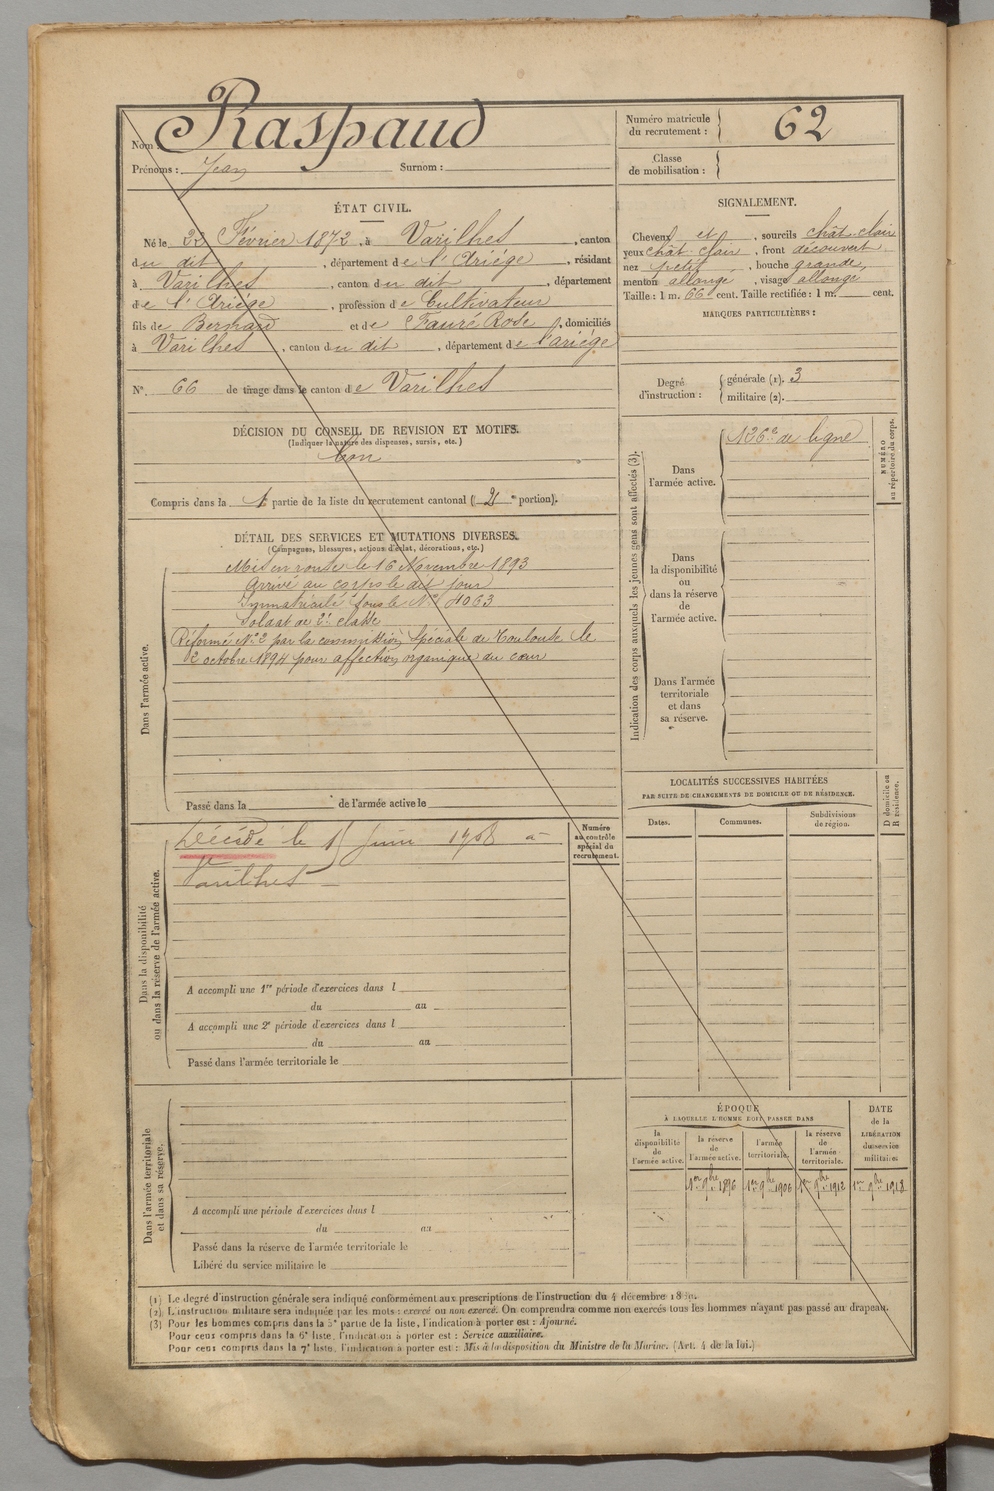 Nom : Raspaud
Prénoms : Jean Surnom :
Numéro matricule du recrutement : 62
Classe de mobilisation :
ÉTAT CIVIL.
Né le 22 Février 1872, à Varilhes, canton
du dit, département de l'Ariège, résidant
à Varilhes, canton du dit, département
de l'Ariège, profession de Cultivateur
fils de Bernard et de Fauré Rose, domiciliés
à Varilhes, canton du dit, département de l'ariége
No. 66 de tirage dans le canton de Varilhes
DÉCISION DU CONSEIL DE REVISION ET MOTIFS.
(Indiquer la nature des dispenses, sursis, etc.)
bon
Compris dans la 1e partie de la liste du recrutement cantonal (2e portion).
SIGNALEMENT.
Cheveux et, sourcils chât. clair
yeux chât. clair, front découvert
nez petit, bouche grande,
menton allongé, visage allongé
Taille : 1 m. 66 cent. Taille rectifiée : 1 m. cent.
MARQUES PARTICULIÈRES :
Degré d'instruction : générale (1). 3
militaire (2).
DÉTAIL DES SERVICES ET MUTATIONS DIVERSES.
(Campagnes, blessures, actions d'éclat, décorations, etc.)
Dans l'armée active.
Mis en route le 16 Novembre 1893
Arrivé au corps le dit jour
Immatriculé sous le No 4063
Soldat de 2e classe
Réformé No 2 par la commission spéciale de Toulouse le
2 octobre 1894 pour affection organique du cœur
Passé dans la de l'armée active le
Dans la disponibilité ou dans la réserve de l'armée active.
Décédé le Juin à
Varilhes
Numéro au contrôle spécial du recrutement.
A accompli une 1re période d'exercices dans l
du au
A accompli une 2e période d'exercices dans l
du au
Passé dans l'armée territoriale le
Dans l'armée territoriale et dans sa réserve.
A accompli une période d'exercices dans l
du au
Passé dans la réserve de l'armée territoriale le
Libéré du service militaire le
Indication des corps auxquels les jeunes gens sont affectés (3).
Dans l'armée active.
126e de ligne
NUMÉRO au répertoire du corps.
Dans la disponibilité ou dans la réserve de l'armée active.
Dans l'armée territoriale et dans sa réserve.
LOCALITÉS SUCCESSIVES HABITÉES
PAR SUITE DE CHANGEMENTS DE DOMICILE OU DE RÉSIDENCE.
Dates. Communes. Subdivisions de région.
D domicile ou R résidence.
ÉPOQUE
À LAQUELLE L'HOMME DOIT PASSER DANS
la disponibilité de l'armée active.
la réserve de l'armée active.
l'armée territoriale.
la réserve de l'armée territoriale.
DATE de la LIBÉRATION du service militaire.
1er 9bre 1896 1er 9bre 1906 1er 9bre 1912 1er 9bre 1918
(1) Le degré d'instruction générale sera indiqué conformément aux prescriptions de l'instruction du 4 décembre
(2) L'instruction militaire sera indiquée par les mots : exercé ou non exercé. On comprendra comme non exercés tous les hommes n'ayant pas passé au drapeau.
(3) Pour les hommes compris dans la 5e partie de la liste, l'indication à porter est : Ajourné.
Pour ceux compris dans la 6e liste, l'indication à porter est : Service auxiliaire.
Pour ceux compris dans la 7e liste, l'indication à porter est : Mis à la disposition du Ministre de la Marine. (Art. 4 de la loi.)